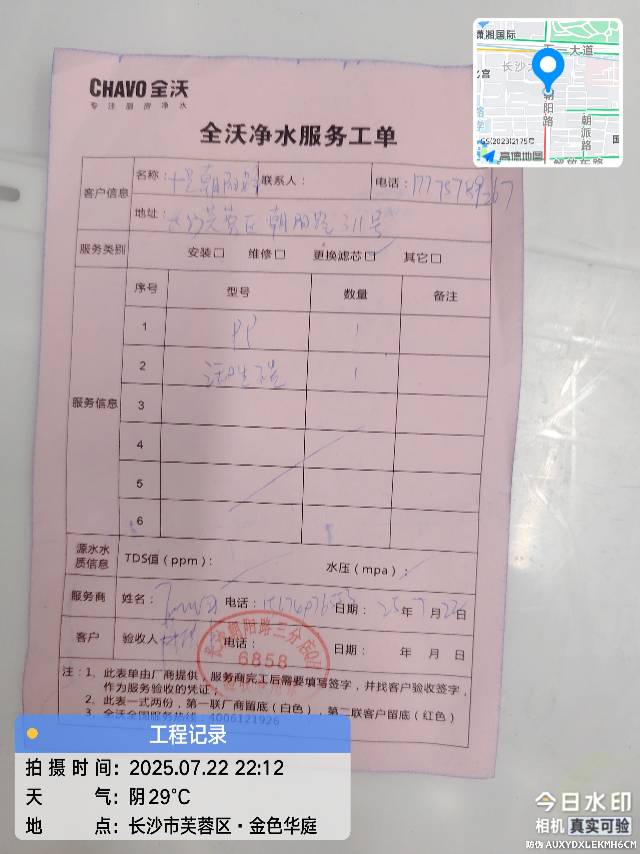 CHAVO 全沃
专注厨房净水
全沃净水服务工单
客户信息
名称: 朝阳路 联系人: 电话:
地址: 芙蓉区朝阳路311号
服务类别 安装□ 维修□ 更换滤芯□ 其它□
服务信息
序号 型号 数量 备注
1 PP 1
2 活性炭 1
3
4
5
6
源水水质信息 TDS值(ppm): 水压(mpa):
服务商 姓名: 电话: 日期: 25年7月22
客户 验收人 电话: 日期: 年 月 日
朝阳路三分店
6858
注:1、此表单由厂商提供,服务商完工后需要填写签字,并找客户验收签字,
作为服务验收的凭证,
2、此表一式两份,第一联厂商留底(白色),第二联客户留底(红色)
3、全沃全国服务热线:4006121926
潇湘国际
五一大道
朝阳路
朝派路
解放东路
GS(2023)2175号
高德地图
工程记录
拍摄时间:2025.07.22 22:12
天气:阴29°C
地点:长沙市芙蓉区·金色华庭
今日水印
相机 真实可验
防伪 AUXYDXLEKMH6CM